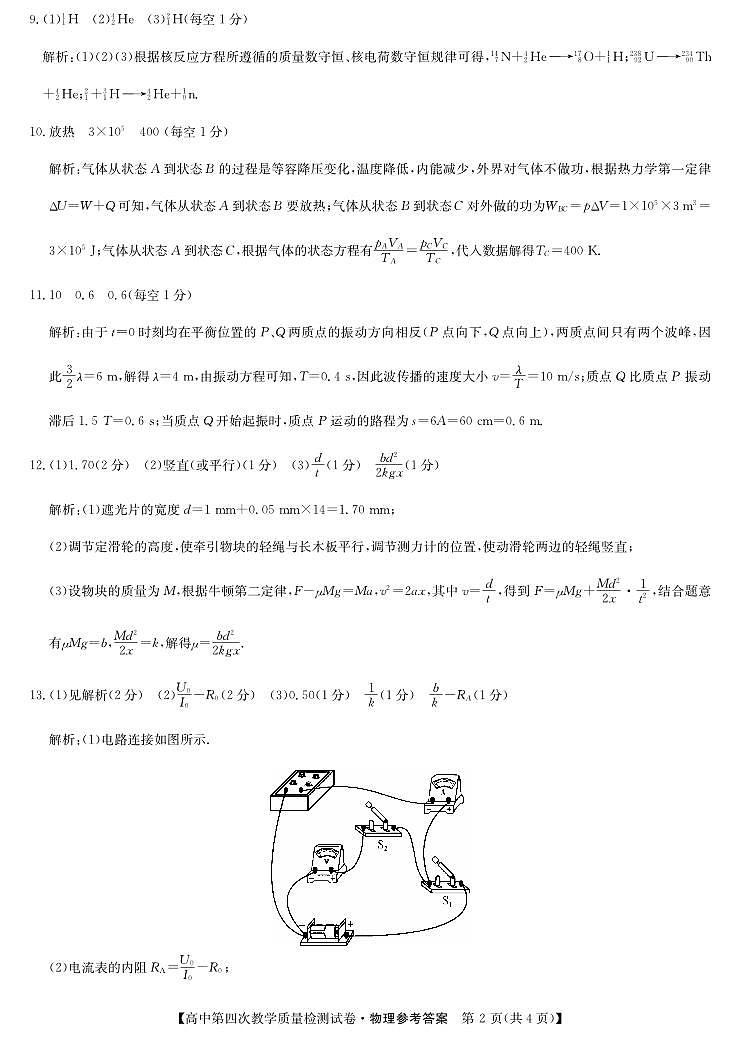 9. (1)¹₁H (2)⁴₂He (3)²₁H(每空 1 分)
解析:(1)(2)(3)根据核反应方程所遵循的质量数守恒、核电荷数守恒规律可得,¹⁴₇N+⁴₂He⟶¹⁷₈O+¹₁H;²³⁸₉₂U⟶²³⁴₉₀Th
+⁴₂He;²₁+³₁H⟶⁴₂He+¹₀n.
10. 放热 3×10⁵ 400 (每空 1 分)
解析:气体从状态 A 到状态 B 的过程是等容降压变化,温度降低,内能减少,外界对气体不做功,根据热力学第一定律
ΔU=W+Q 可知,气体从状态 A 到状态 B 要放热;气体从状态 B 到状态 C 对外做的功为W_BC=pΔV=1×10⁵×3 m³=
3×10⁵ J;气体从状态 A 到状态 C,根据气体的状态方程有p_AV_A/T_A=p_CV_C/T_C,代入数据解得T_C=400 K.
11. 10 0.6 0.6(每空 1 分)
解析:由于 t=0 时刻均在平衡位置的 P、Q 两质点的振动方向相反(P 点向下,Q 点向上),两质点间只有两个波峰,因
此3/2λ=6 m,解得 λ=4 m,由振动方程可知,T=0.4 s,因此波传播的速度大小 v=λ/T=10 m/s;质点 Q 比质点 P 振动
滞后 1.5 T=0.6 s;当质点 Q 开始起振时,质点 P 运动的路程为 s=6A=60 cm=0.6 m.
12. (1)1.70(2 分) (2)竖直(或平行)(1 分) (3)d/t(1 分) bd²/2kgx(1 分)
解析:(1)遮光片的宽度 d=1 mm+0.05 mm×14=1.70 mm;
(2)调节定滑轮的高度,使牵引物块的轻绳与长木板平行,调节测力计的位置,使动滑轮两边的轻绳竖直;
(3)设物块的质量为 M,根据牛顿第二定律,F-μMg=Ma,v²=2ax,其中 v=d/t,得到 F=μMg+Md²/2x·1/t²,结合题意
有μMg=b,Md²/2x=k,解得μ=bd²/2kgx.
13. (1)见解析(2 分) (2)U₀/I₀-R₀(2 分) (3)0.50(1 分) 1/k(1 分) b/k-R_A(1 分)
解析:(1)电路连接如图所示.
A
- +
S₂
V
- +
S₁
- +
(2)电流表的内阻 R_A=U₀/I₀-R₀;
【高中第四次教学质量检测试卷·物理参考答案 第 2 页(共 4 页)】